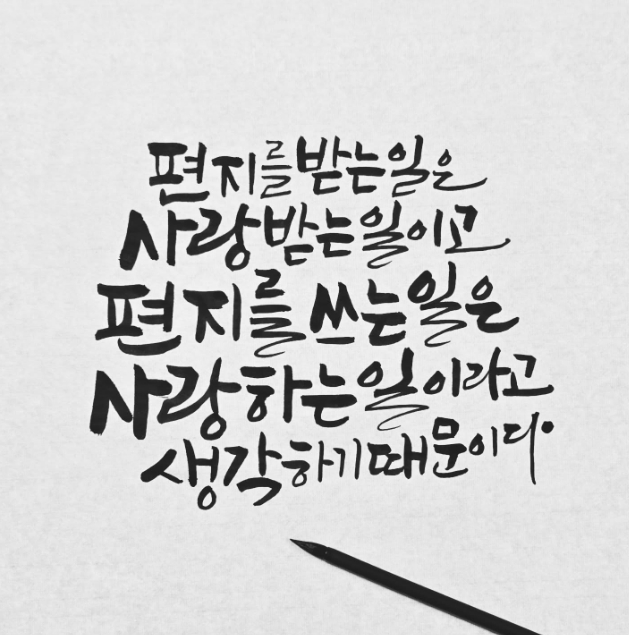 편지를 받는 일은
사랑 받는 일이고
편지를 쓰는 일은
사랑하는 일이라고
생각하기 때문이다.